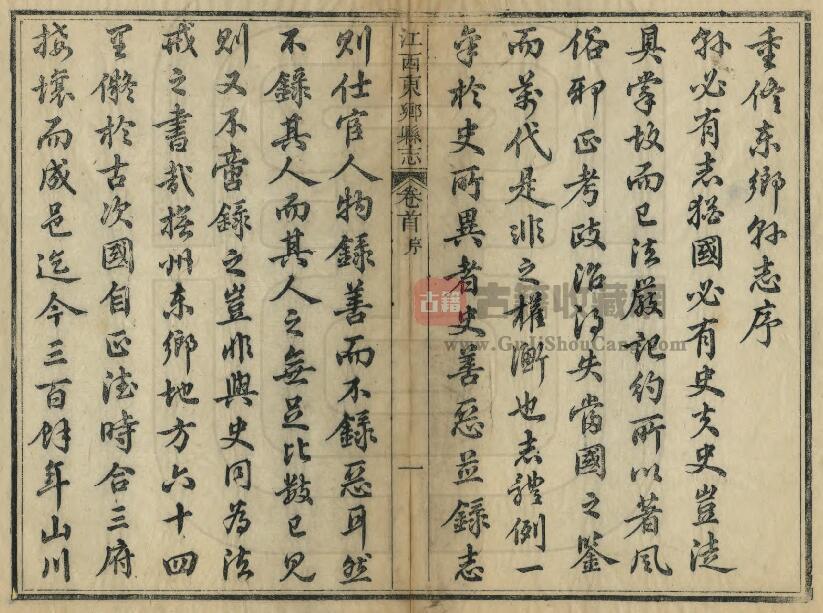 重修东鄉縣志序
縣必有志猶國必有史夫史豈徒
具掌故而已法嚴記約所以著風
俗邪正考政治得失當國之鑒
而萬代是非之權衡也志禮例一
準於史所異者史善惡並録志
江西東鄉縣志 卷首 序 一
則仕宦人物録善而不録惡耳然
不録其人而其人之無足比數已見
則又不啻録之豈非與史同為法
戒之書哉撫州东鄉地方六十四
里儗於古次國自正德時合三府
接壤而成邑迄今三百餘年山川
古籍 古籍收藏网
www.GujiShouCang.com